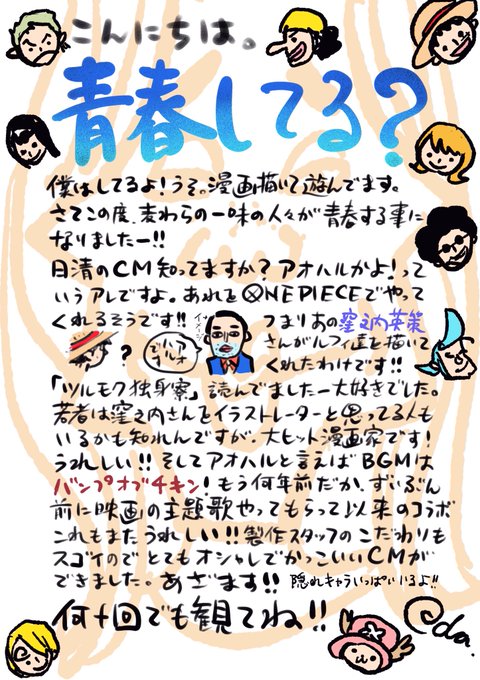 こんにちは。
青春してる?
僕はしてるよ!うそ。漫画描いて遊んでます。
さてこの度、麦わらの一味の人々が青春する事に
なりましたー!!
日清のCM知ってますか?アオハルかよ!って
いうアレですよ。あれをONEPIECEでやって
くれるそうです!!
イメージ
?
つまりあの窪之内英策
さんがルフィ達を描いて
くれたわけです!!
「ツルモク独身寮」読んでましたー大好きでした。
若者は窪之内さんをイラストレーターと思ってる人も
いるかも知れんですが、大ヒット漫画家です!
うれしい!!そしてアオハルと言えばBGMは
バンプオブチキン!もう何年前だか、ずいぶん
前に映画の主題歌やってもらって以来のコラボ
これもまたうれしい!!製作スタッフのこだわりも
スゴイのでとてもオシャレでかっこいいCMが
できました。あざます!!隠れキャラいっぱいいるよ!!
何十回でも観てね!!
Oda.